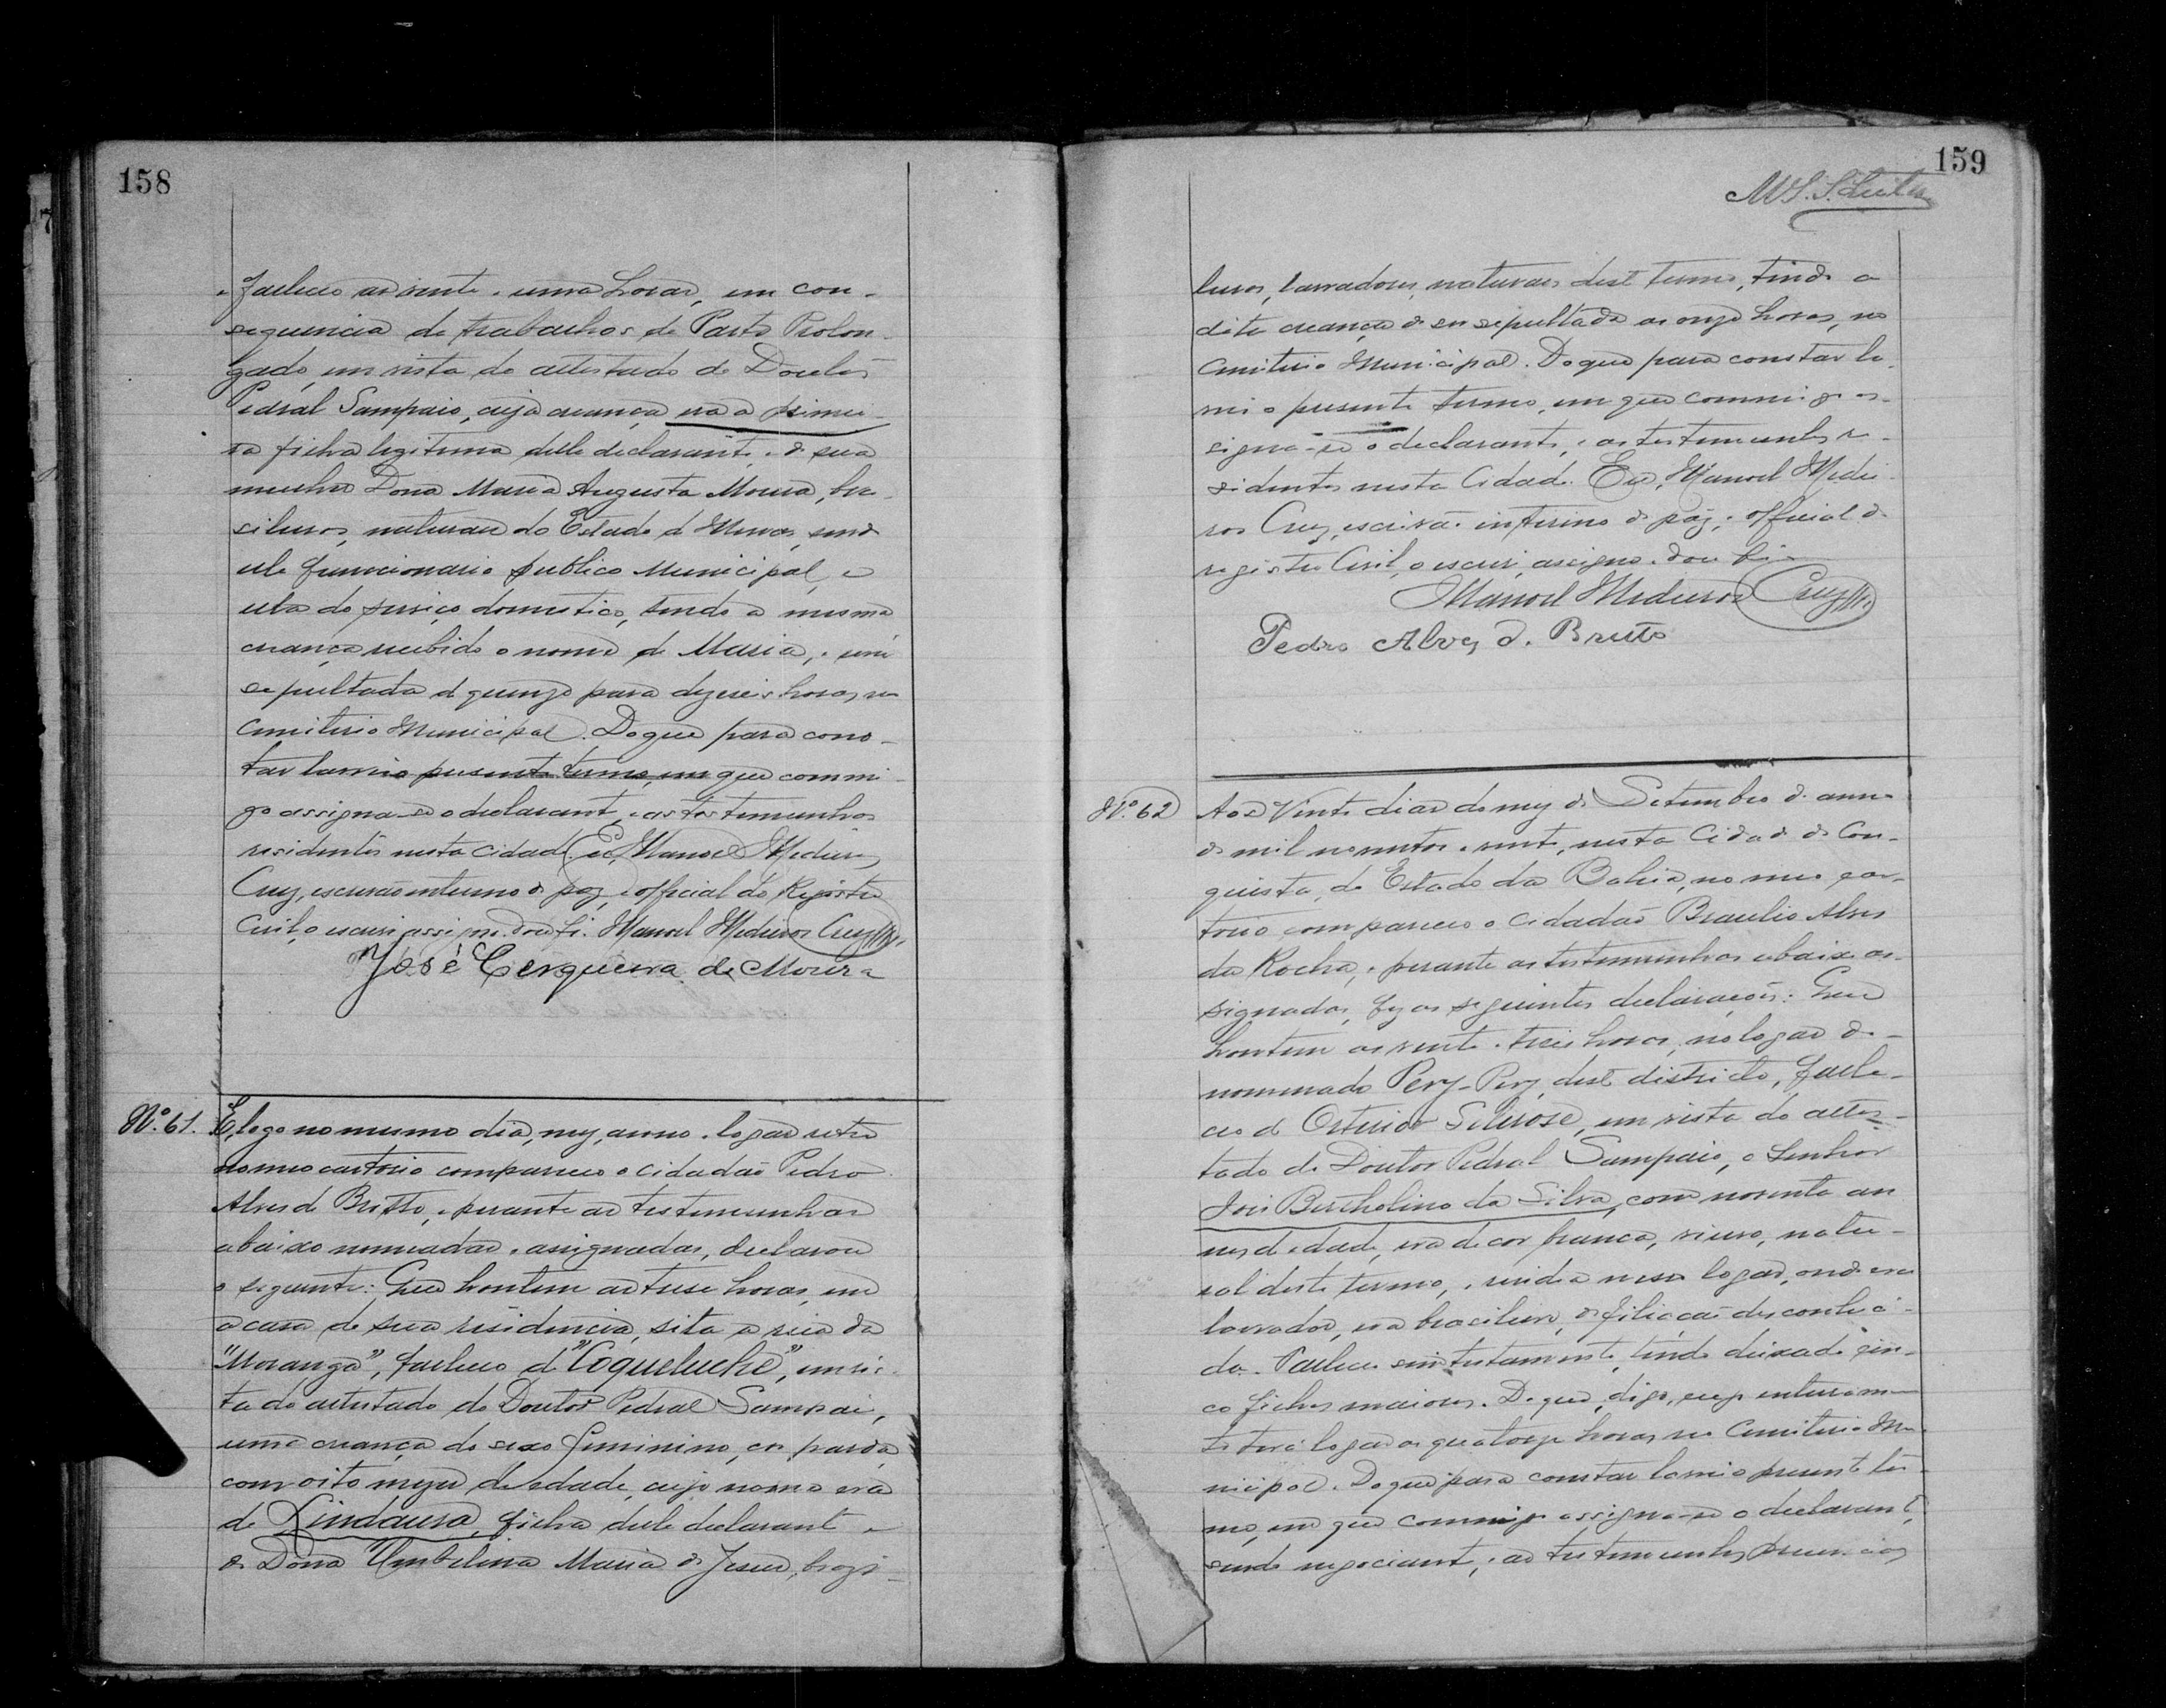 158
e falleceo as vinte e uma horas, em con-
sequencia de trabalhos de Parto Prolon-
gado, em vista do attestado do Doutor
Pedral Sampaio, cuja creança era a primei-
ra filha legitima delle declarante, e de sua
mulher Dona Maria Augusta Moura, bra-
sileiros, naturaes do Estado de Minas, sendo
elle funccionario publico Municipal, e
ella do serviço domestico, tendo a mesma
creança recebido o nome de Maria, e será
sepultada de quinze para dezeseis horas no
Cemiterio Municipal. Do que para cons-
tar lavrei o presente termo, em que commi-
go assigna-se o declarante, e as testemunhas
residentes nesta Cidade. Eu, Manoel Medeiros
Cruz, escrivão interino de paz, e official do Registro
Civil, o escrevi, assigno. Dou fé. Manoel Medeiros Cruz
José Cerqueira de Moura
Nº. 61.
E, logo no mesmo dia, mez, anno e logar retro
no meo cartorio compareceo o cidadão Pedro
Alves de Britto, e perante as testemunhas
abaixo nomeadas e assignadas, declarou
o seguinte: Que hontem as trese horas, em
a casa de sua residencia, sita a rua da
"Moranga", falleceo de "Coqueluche", em vis-
ta do attestado do Doutor Pedral Sampaio,
uma creança do sexo feminino, cor parda,
com oito mezes de edade, cujo nome era
de Lindaura, filha delle declarante e
de Dona Umbelina Maria de Jesus, brazi-
159
leiros, lavradores, naturaes deste termo, tendo a
dita creança de ser sepultada as onze horas, no
Cemiterio Municipal. Do que para constar la-
vrei o presente termo, em que commigo as-
signa-se o declarante, e as testemunhas re-
sidentes nesta Cidade. Eu, Manoel Medei-
ros Cruz, escrivão interino de paz, e official do
registro Civil, o escrevi, assigno. Dou fé
Manoel Medeiros Cruz
Pedro Alves d. Britto
Nº. 62
Aos Vinte dias do mez de Setembro do anno
de mil novecentos e vinte, nesta Cidade de Con-
quista, do Estado da Bahia, no meo car-
torio compareceo o cidadão Braulio Alves
da Rocha, e perante as testemunhas abaixo as-
signadas, fez as seguintes declarações: Que
hontem as vinte e tres horas, no logar de-
nominado Pery-Pery, deste districto, falle-
ceo de Arterio Sclerose, em vista do attes-
tado do Doutor Pedral Sampaio, o Senhor
José Bercholino da Silva, com noventa an
nos de edade, era de cor branca, viuvo, natu-
ral deste termo, e residia nesse logar, onde era
lavrador, era brasileiro, de filiação desconheci-
da. Falleceo sem testamento, tendo deixado cin-
co filhos maiores. Do que, digo, cujo enterramen
to terá logar as quatorze horas no Cemiterio Mu-
nicipal. Do que para constar lavrei o presente ter-
mo, em que commigo assigna-se o declarante,
sendo negociante, e as testemunhas